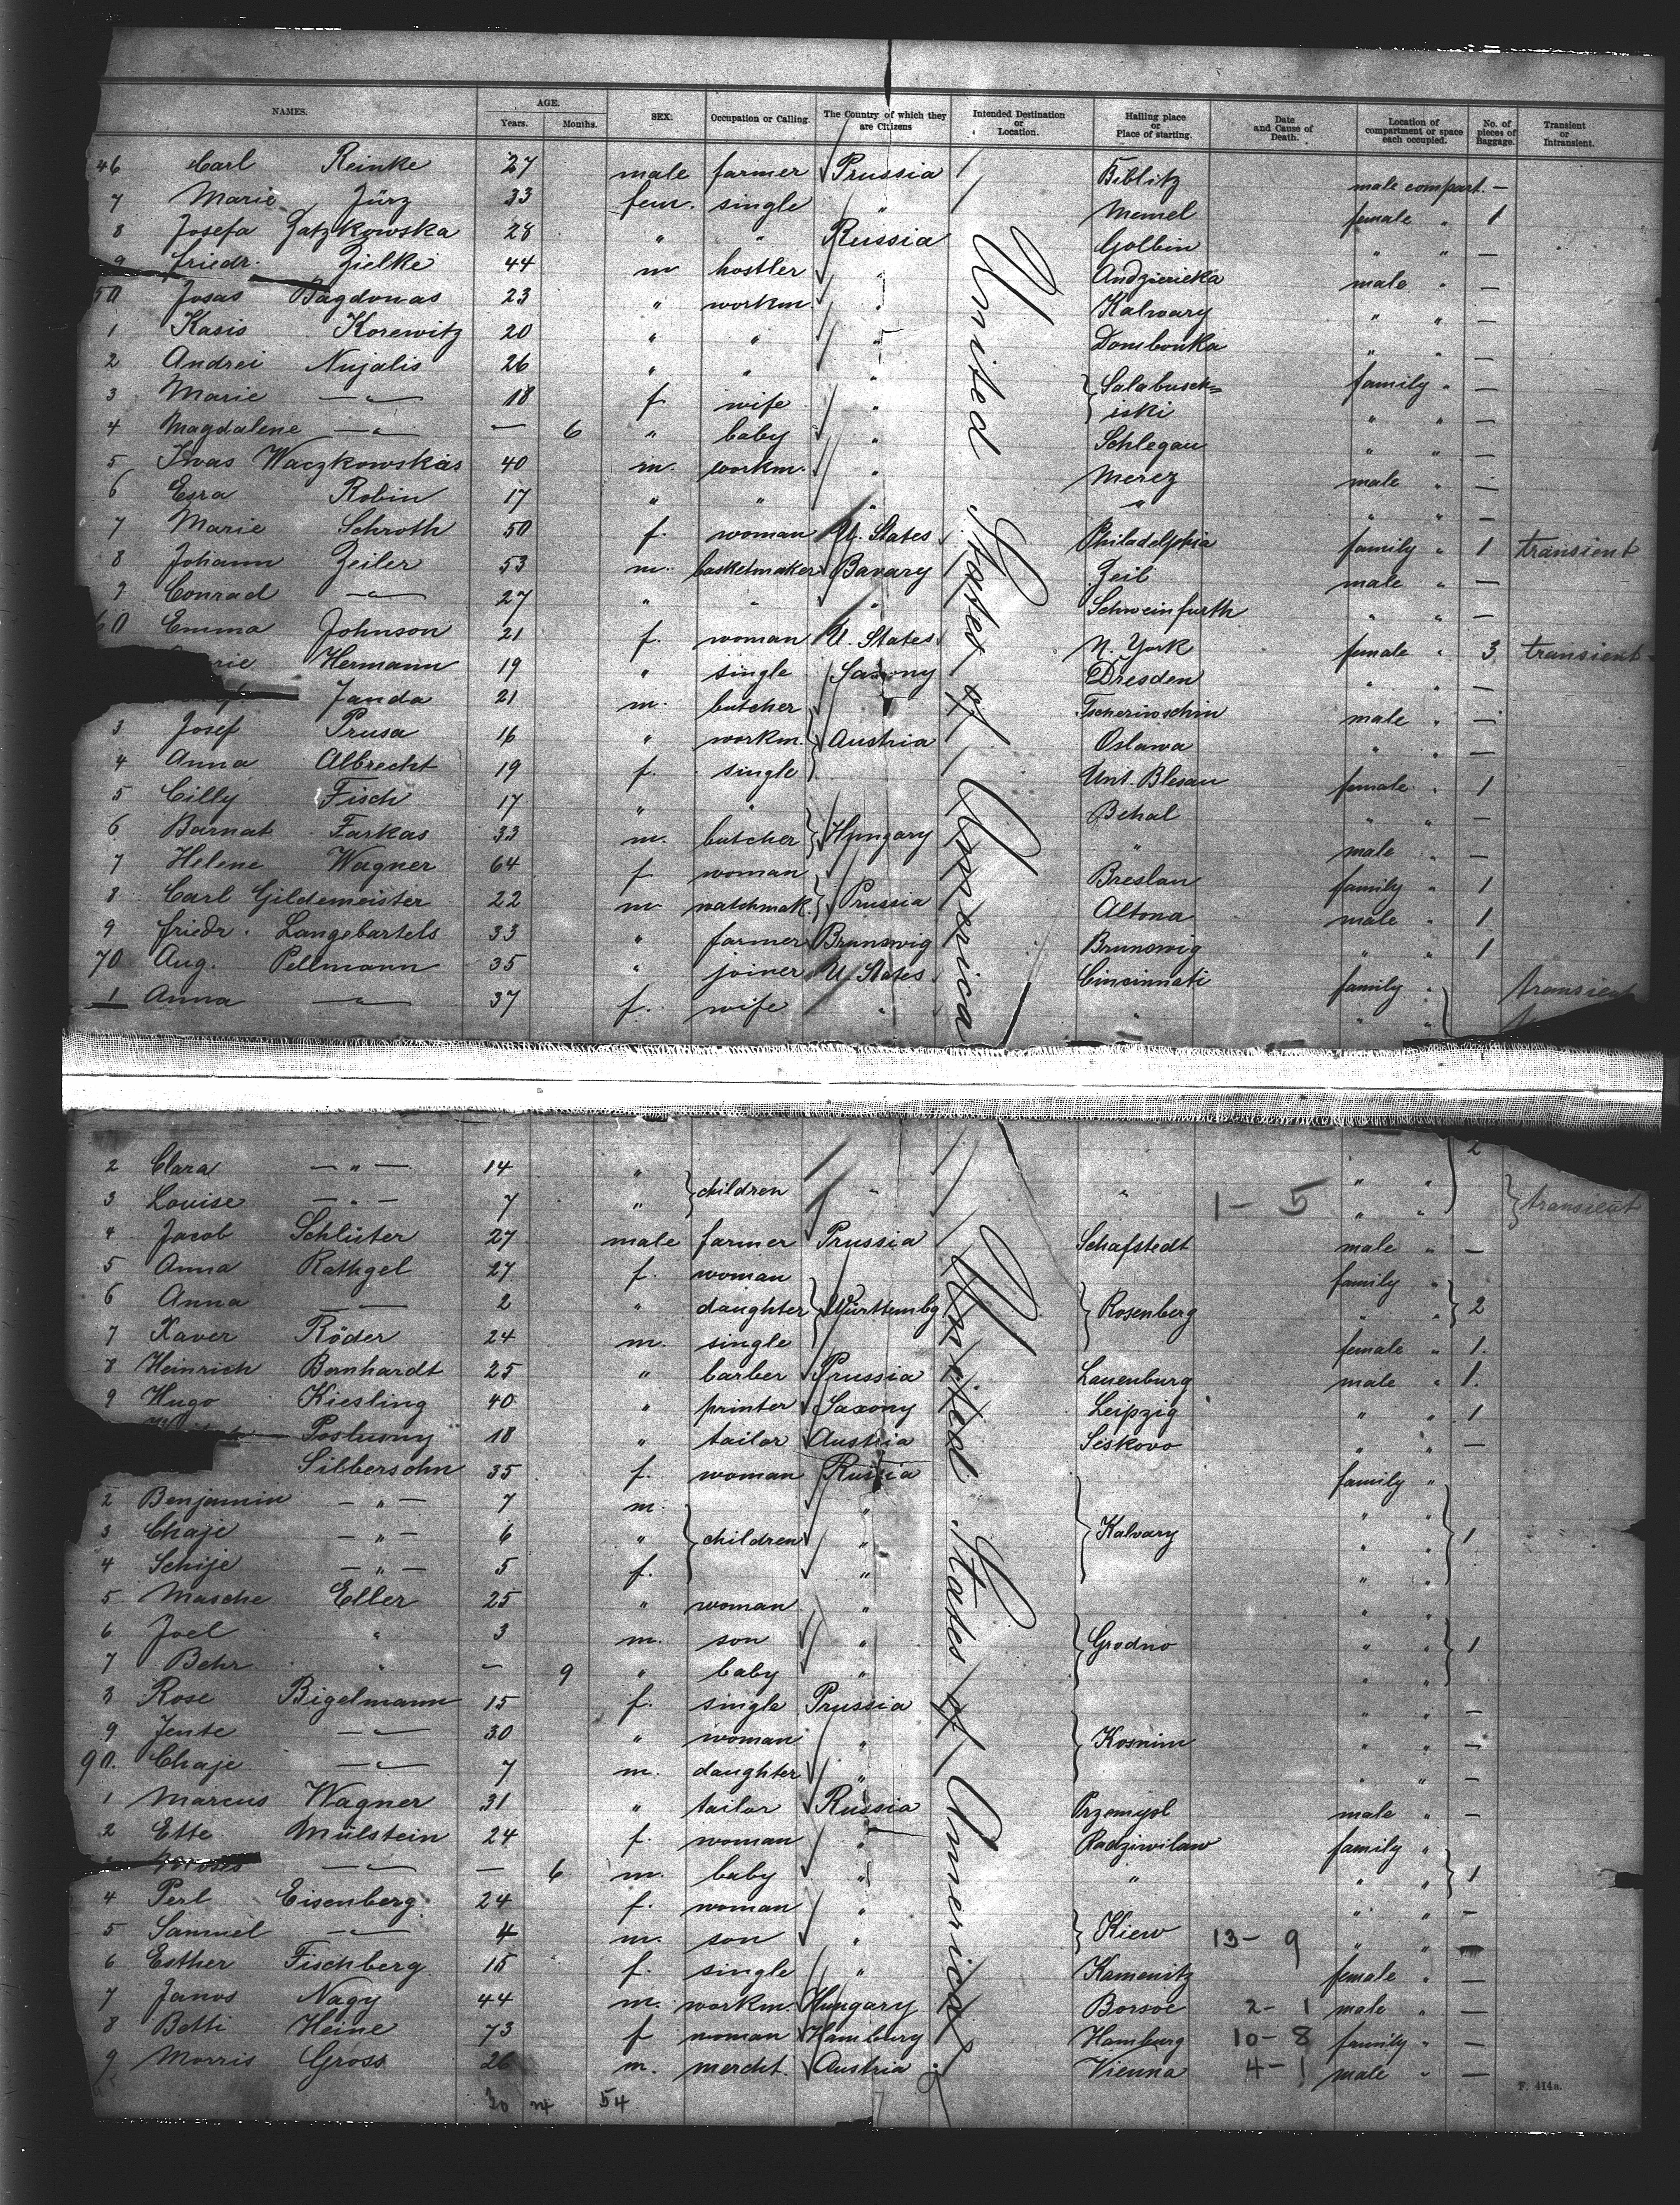 NAMES. AGE. Years. Months. SEX. Occupation or Calling. The Country of which they are Citizens Intended Destination or Location. Hailing place or Place of starting. Date and Cause of Death. Location of compartment or space each occupied. No. of pieces of Baggage. Transient or Intransient.
46 Carl Reinke 27 male farmer Prussia Biblitz male compart. —
7 Marie Jürz 33 fem. single " Memel female " 1
8 Josefa Gatzkowska 28 " " Russia Golbin " " —
9 Friedr. Zielke 44 m hostler " Andziericka male " —
50 Josas Bagdonas 23 " workm. " Kalvary " " —
1 Kasis Korewitz 20 " " " Dombowka " " —
2 Andrei Nujalis 26 " " " Salabusck= family " —
3 Marie —"— 18 f. wife " iski " " —
4 Magdalene —"— — 6 " baby " Schlegau " " —
5 Iwas Waczkowskas 40 m. workm. " Merez male " —
6 Esra Robin 17 " " " " " " —
7 Marie Schroth 50 f. woman U. States. Philadelphia family " 1 transient
8 Johann Zeiler 53 m. basketmaker Bavary Zeil male " —
9 Conrad —"— 27 " " " Schweinfurth " " —
60 Emma Johnson 21 f. woman U. States. N. York female " 3 transient
Hermann 19 " single Saxony Dresden " " —
Janda 21 m. butcher Tscherinoschin male " —
3 Josef Prusa 16 " workm. Austria Oslawa " " —
4 Anna Albrecht 19 f. single Unt. Blesau female " 1
5 Cilly Fisch 17 " " Behal " " —
6 Barnat Farkas 33 m. butcher Hungary " male " —
7 Helene Wagner 64 f. woman Breslau family " 1
8 Carl Gildemeister 22 m watchmak. Prussia Altona male " 1
9 Friedr. Langebartels 33 " farmer Brunswig Brunswig " " 1
70 Aug. Pellmann 35 " joiner U. States. Cincinnati family " transient
1 Anna —"— 37 f. wife " " " "
United States of America
2 Clara —"— 14 " " " 2
3 Louise —"— 7 " children " " 1-5 " " transient
4 Jacob Schlüter 27 male farmer Prussia Schafstedt male " —
5 Anna Rathgel 27 f. woman family "
6 Anna —"— 2 " daughter Württembg Rosenberg " " 2
7 Xaver Röder 24 m. single female " 1.
8 Heinrich Bornhardt 25 " barber Prussia Lauenburg male " 1.
9 Hugo Kiesling 40 " printer Saxony Leipzig " " 1
Poslusny 18 " tailor Austria Seskovo " " —
Silbersohn 35 f. woman Russia family "
2 Benjamin —"— 7 m. " " "
3 Chaje —"— 6 " children " Kalvary " " 1
4 Schije —"— 5 f. " " "
5 Masche Eller 25 " woman " " "
6 Joel " 3 m. son " Grodno " " 1
7 Behr " — 9 " baby " " "
8 Rose Bigelmann 15 f. single Prussia " " —
9 Jente —"— 30 " woman " Kosnim " " —
90. Chaje —"— 7 m. daughter " " " —
1 Marcus Wagner 31 " tailor Russia Przemysl male " —
2 Ette Mülstein 24 f. woman " Radziwilaw family "
3 Moses —"— — 6 m. baby " " " " 1
4 Perl Eisenberg 24 f. woman " " " —
5 Samuel —"— 4 m. son " Kiew 13-9 " "
6 Esther Fischberg 15 f. single " Kamenitz female " —
7 Janos Nagy 44 m. workm. Hungary Borsoe 2-1 male " —
8 Betti Heine 73 f woman Hamburg Hamburg 10-8 family " —
9 Morris Gross 26 m. mercht. Austria Vienna 4-1 male " —
United States of America
30 24 54
F. 414a.